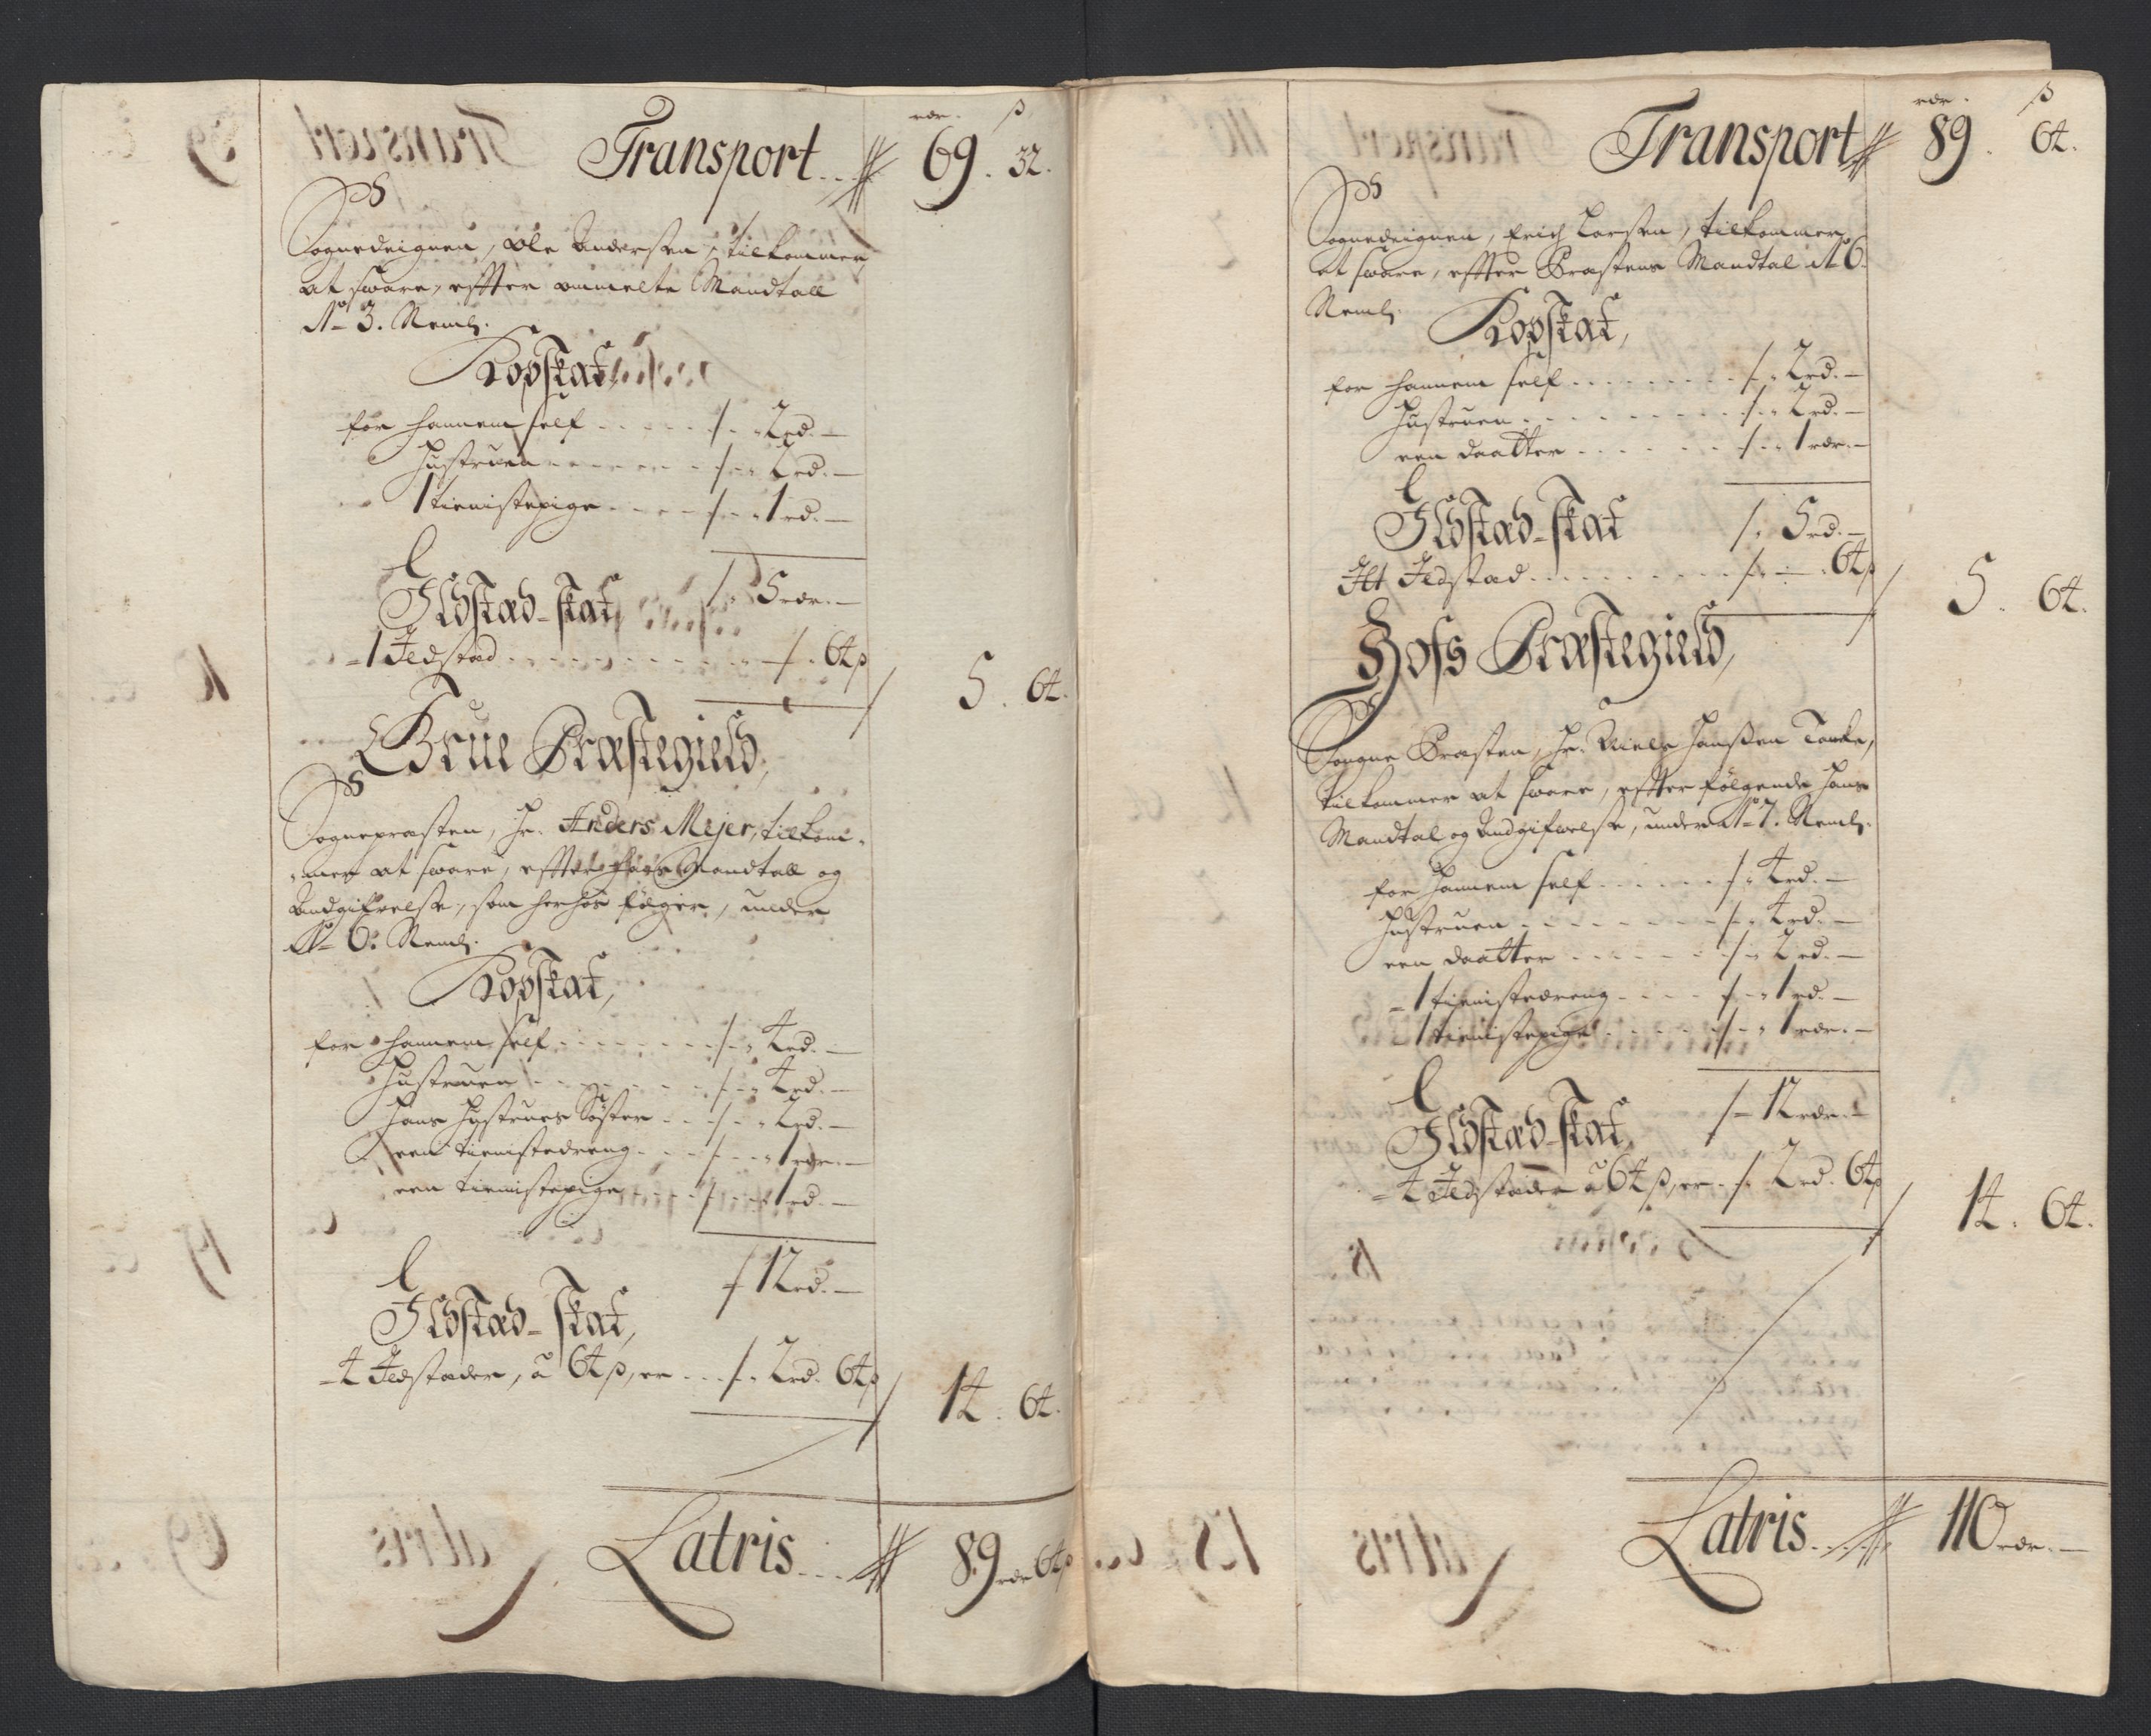 rdr. ß
Transport... 69. 32.
Sognedeignen, Ole Andersen, tilkommer
at svare, effter ommelte Mandtall
No 3. Neml.
Kopskat,
for hannem self ..... /. 2rd. —
Hustruen ..... /. 2rd. —
1 tienistepige ..... /. 1rd. —
/. 5rdr. —
Ildsted-skat,
- 1 Ildstad ..... /. 64ß
/ 5. 64.
Grue Præstegield,
Sognepræsten, Hr. Anders Mejer, tilkom-
-mer at svare, effter hans Mandtall og
Andgifvelse, som herhos følger, under
No 6. Neml.
Kopskat,
for hannem self ..... /. 4rd. —
Hustruen ..... /. 4rd. —
Hans Hustrues Søster ... /. 2rd. —
een tienistedreng ... /. 1rdr. —
een tienistepige ... /. 1rd. —
/ 12rd. —
Ildsted-skat,
- 4 Ildstæder, à 64ß, er ... /. 2rd. 64ß
/ 14. 64.
Latris.... 89rdr 64ß
rdr. ß
Transport 89. 64.
Sognedeignen, Erich Larsen, tilkommer
at svare, effter Præstens Mandtal No 6.
Neml.
Kopskat,
for hannem self ..... /. 2rd. —
Hustruen ..... /. 2rd. —
een daatter ..... /. 1rdr. —
/. 5rd. —
Ildsted-skat
Itt Ildstad ..... /. — . 64ß
/ 5. 64.
Hofs Præstegield,
Sougne Præsten, Hr. Niels Hanßen
tilkommer at svare, effter følgende hans
Mandtal og Andgifvelse, under No 7. Neml.
for Hannem self ..... /. 4rd. —
Hustruen ..... /. 4rd. —
een daatter ..... /. 2rd. —
- 1 tienistedreng .... /. 1rd. —
- 1 tienistepige ..... /. 1rdr. —
/ 12rdr. —
Ildsted-skat,
- 4 Ildstæder à 64ß, er . /. 2rd. 64ß
/ 14. 64.
Latris..... 110rdr. —